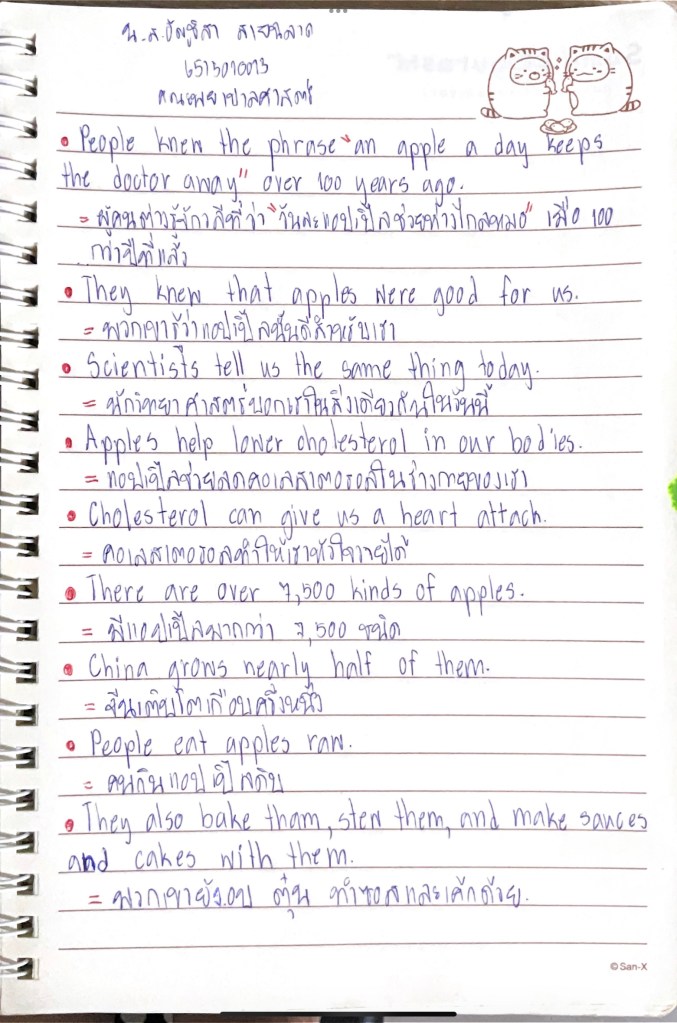 น.ส.ธัญชิสา สายฉลาด
6513010013
คณะพยาบาลศาสตร์
• People knew the phrase "an apple a day keeps
the doctor away" over 100 years ago.
= ผู้คนต่างรู้จักวลีที่ว่า "วันละแอปเปิ้ลช่วยห่างไกลหมอ" เมื่อ 100
กว่าปีที่แล้ว
• They knew that apples were good for us.
= พวกเขารู้ว่าแอปเปิ้ลนั้นดีสำหรับเรา
• Scientists tell us the same thing today.
= นักวิทยาศาสตร์บอกเราในสิ่งเดียวกันในวันนี้
• Apples help lower cholesterol in our bodies.
= แอปเปิ้ลช่วยลดคอเลสเตอรอลในร่างกายของเรา
• Cholesterol can give us a heart attach.
= คอเลสเตอรอลทำให้เราหัวใจวายได้
• There are over 7,500 kinds of apples.
= มีแอปเปิ้ลมากกว่า 7,500 ชนิด
• China grows nearly half of them.
= จีนเติบโตเกือบครึ่งหนึ่ง
• People eat apples raw.
= คนกินแอปเปิ้ลดิบ
• They also bake tham, stew them, and make sauces
and cakes with them.
= พวกเขายังอบ ตุ๋น ทำซอสและเค้กด้วย.
©San-X